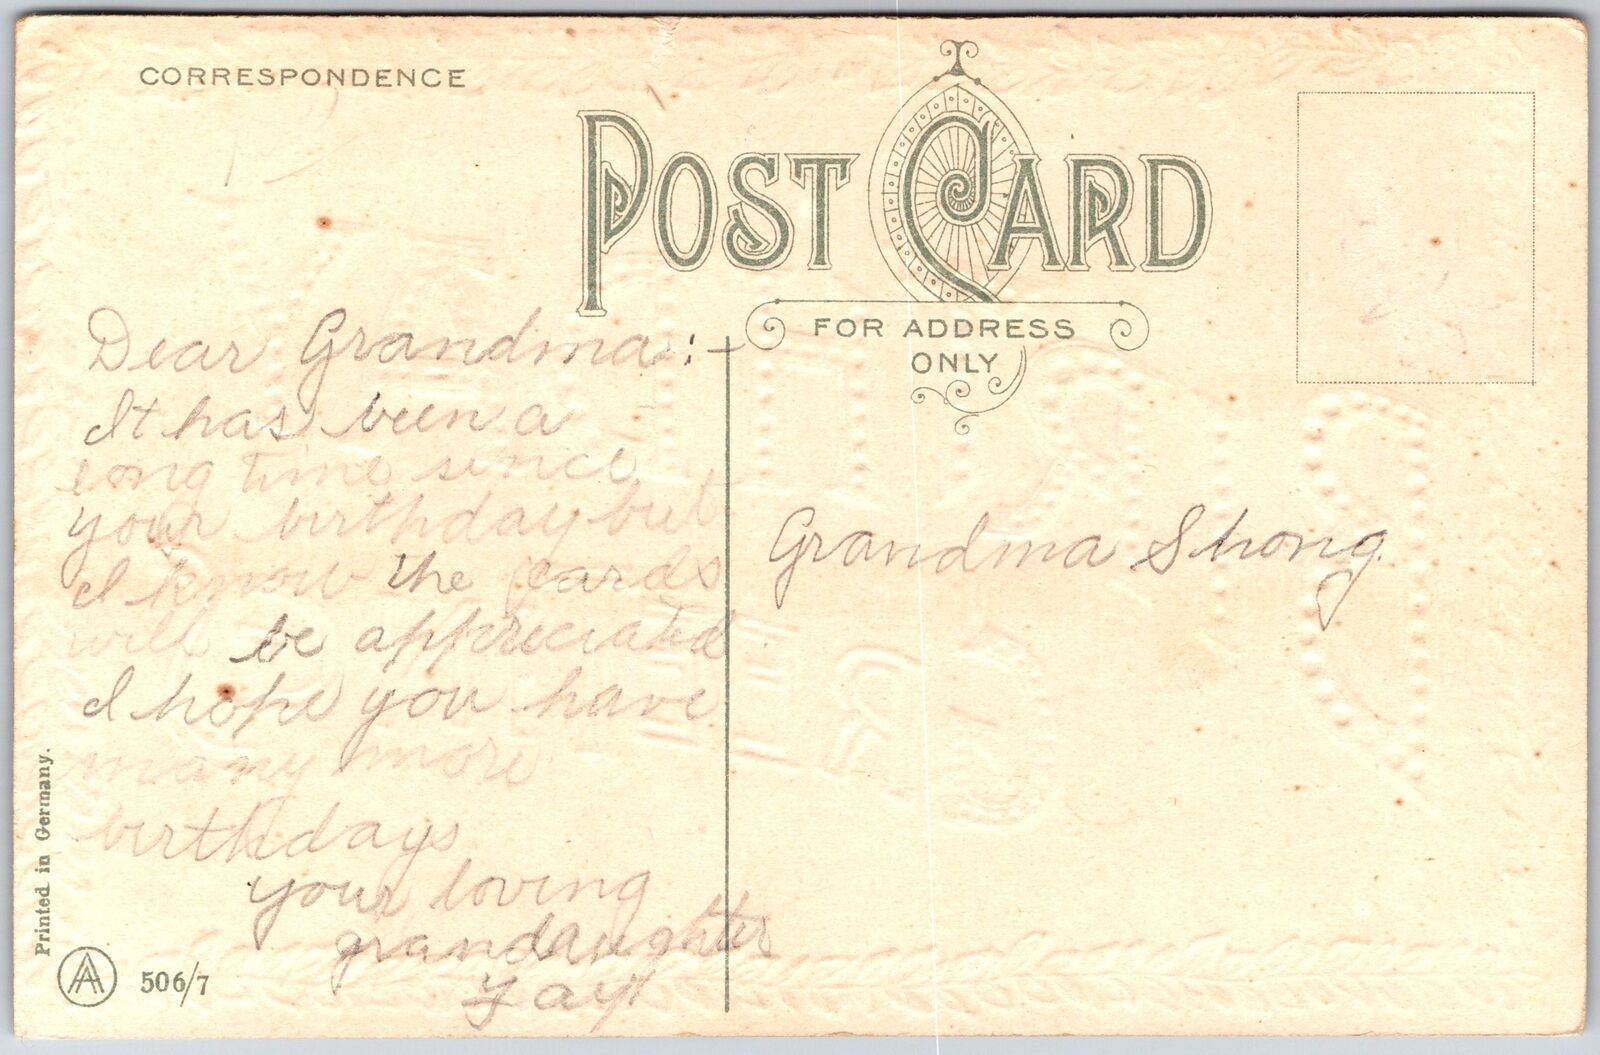 CORRESPONDENCE
POST CARD
FOR ADDRESS
ONLY
Dear Grandma:-
It has been a
long time since
your birthday but
I know the cards
will be appreciated
I hope you have
many more
birthdays
your loving
grandaughter
Fay
Grandma Shong.
Printed in Germany.
AA 506/7